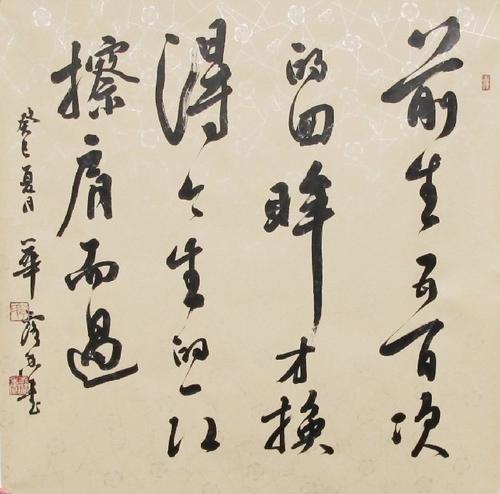 前生五百次
的回眸才换
得今生的一次
擦肩而过
癸巳夏月 华
书